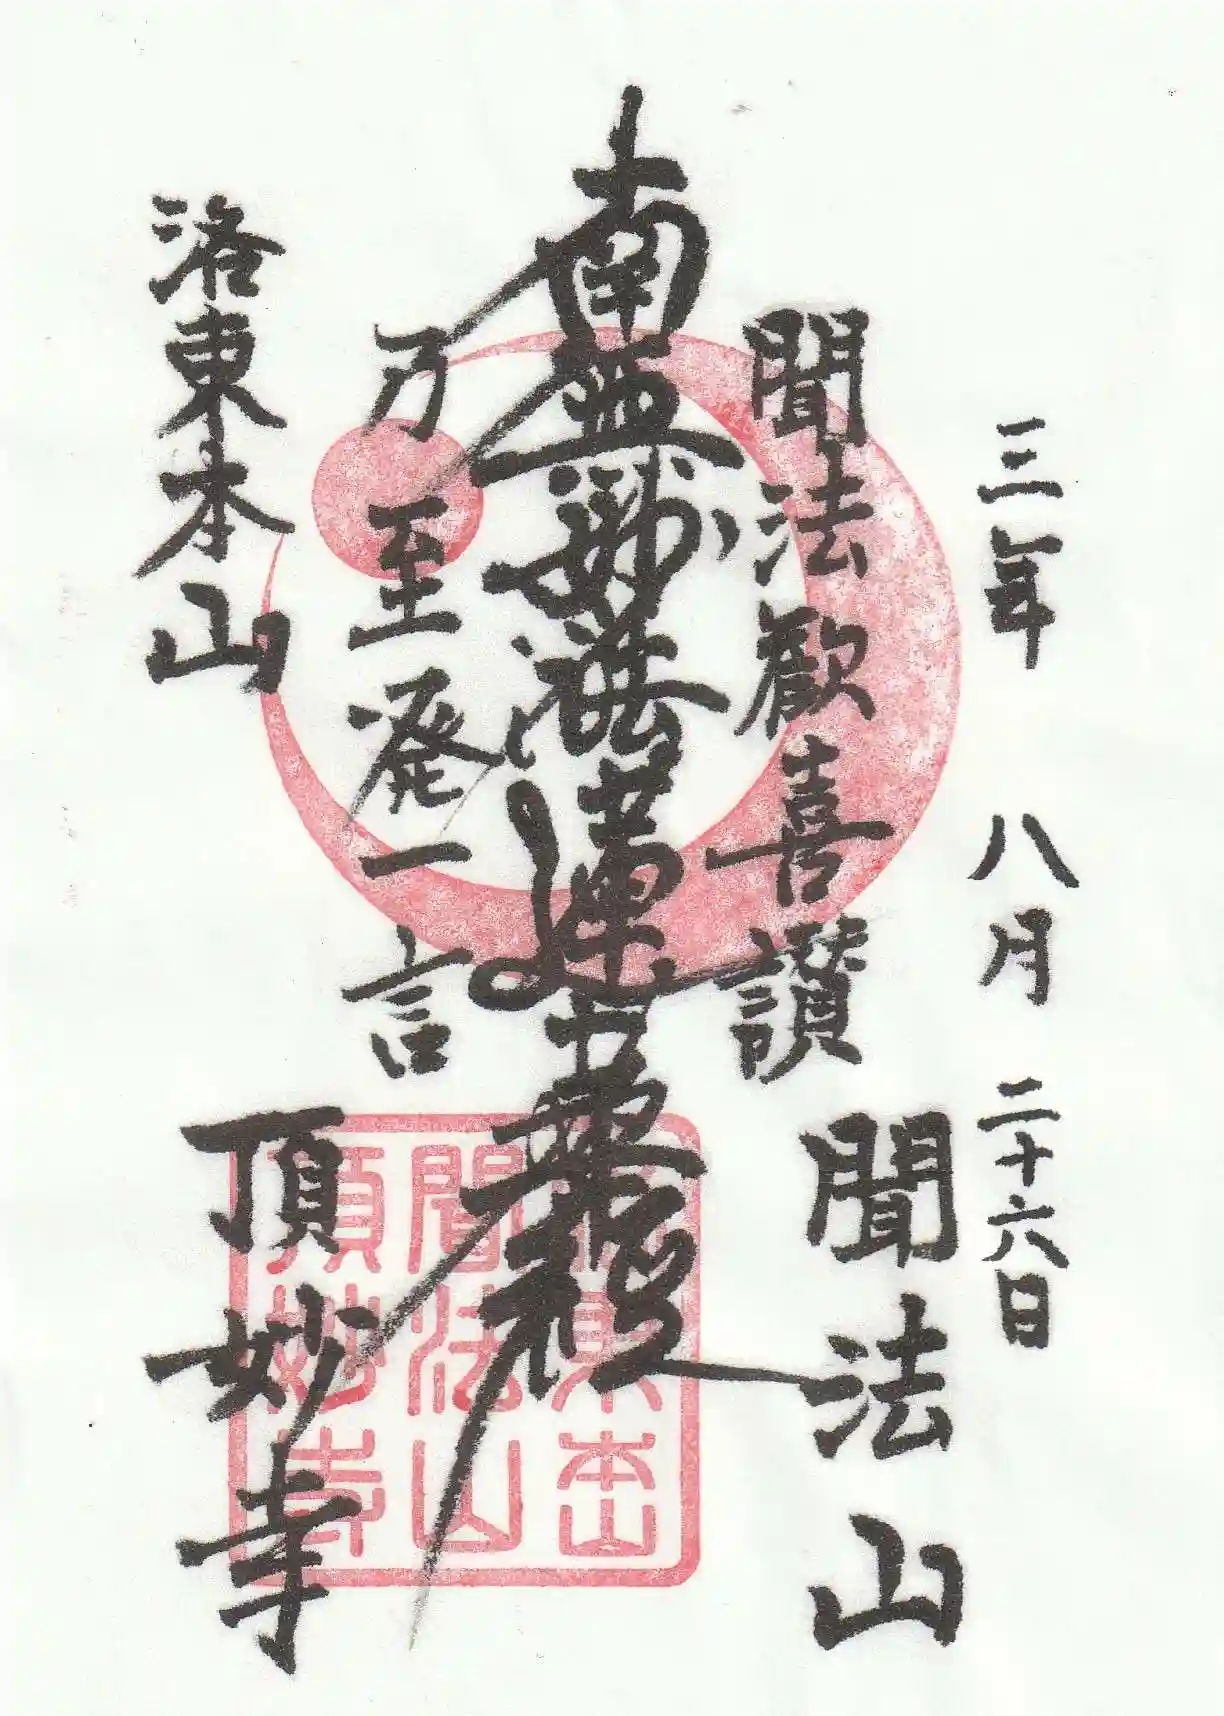 三年 八月 二十六日
聞法歓喜讃
聞法山
南無妙法蓮華経
乃至発一言
洛東本山
頂妙寺
本山
聞法山
頂妙寺